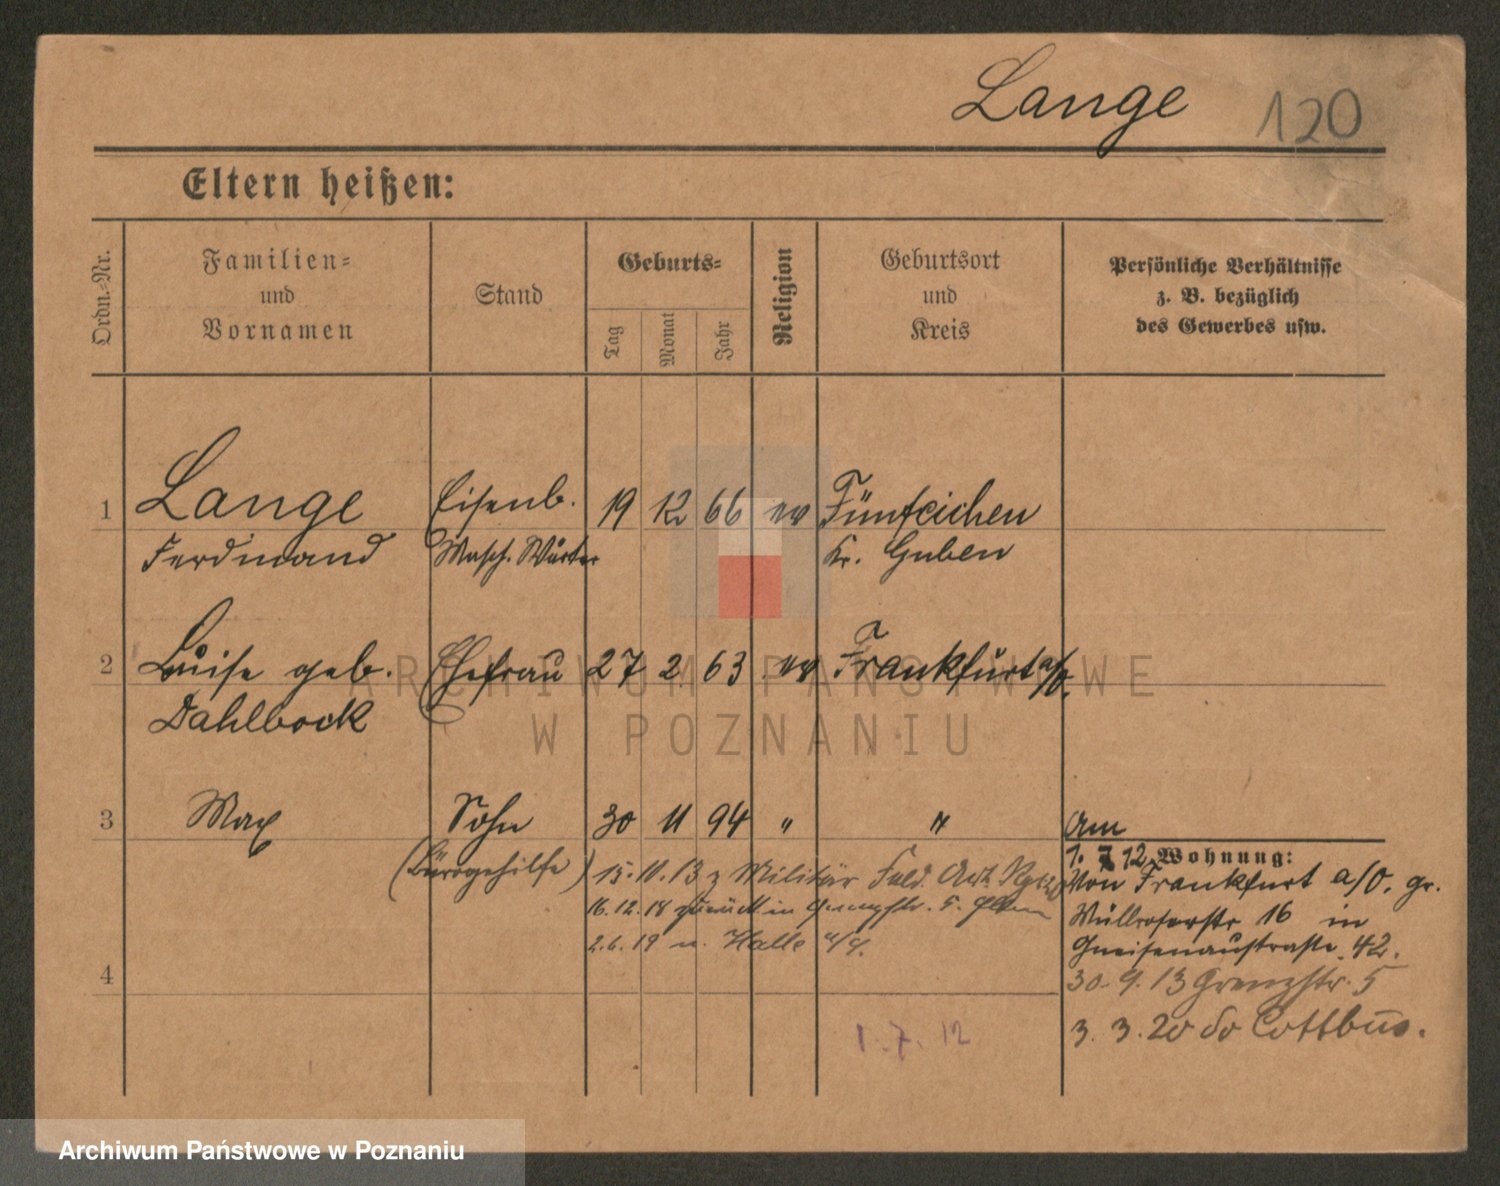 Lange 120
Eltern heißen:
Ordn.-Nr.
Familien-
und
Vornamen
Stand
Geburts-
Tag
Monat
Jahr
Religion
Geburtsort
und
Kreis
Persönliche Verhältnisse
z. B. bezüglich
des Gewerbes usw.
1 Lange Eisenb. 19 12 66 ev Fünfeichen
Ferdinand Masch. Wärter Kr. Guben
2 Luise geb. Ehefrau 27 2 63 ev Frankfurt a/O.
Dahlbock
3 Max Sohn 30 11 94 " "
(Bürogehilfe) 15.11.13 z Militär Feld. Art.
16.12.18 zurück in Grenzstr. 5. Eltern
2.6.19 n. Halle a/S.
4
Am
1. 7 12 Wohnung:
Von Frankfurt a/O. gr.
Müllroserstr 16 in
Gneisenaustraße 42.
30. 9. 13 Grenzstr. 5
3. 3. 20 Cottbus.
1. 7. 12
ARCHIWUM PAŃSTWOWE
W POZNANIU
Archiwum Państwowe w Poznaniu